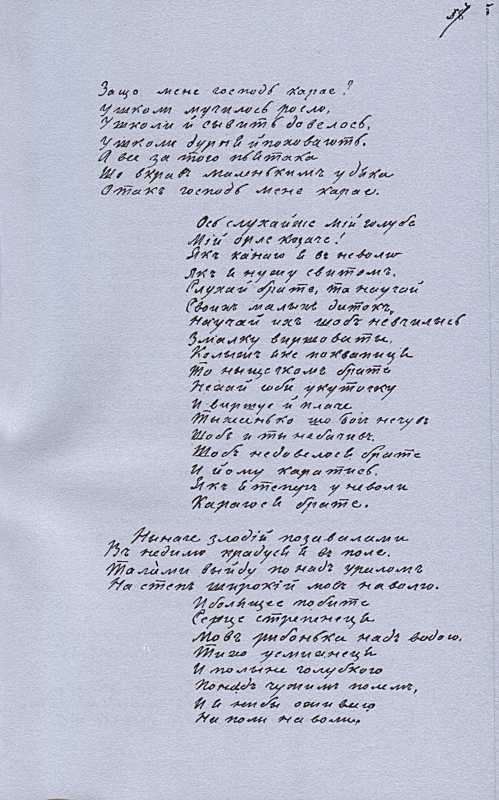 57
Защо мене господь карае?
У школи мучилось росло,
У школи й сывить довелось,
У школи дурня й поховають.
А все за того пьятака
Що вкравъ маленькимъ у дяка
Отакъ господь мене карае.
Ось слухай же мій голубе
Мій орле козаче!
Якъ канаю я въ неволи
Якъ я нужу свитомъ.
Слухай брате, та научай
Своихъ малыхъ дитокъ,
Научай ихъ щобъ невчились
Змалку виршовать.
Колыжъ яке поквапиця
То нышечкомъ брате
Нехай соби у куточку
И виршуе й плаче
Тыхенько що бъ Богъ нечувъ
Щобъ и ты небачивъ.
Щобъ недовелося брате
И йому каратись.
Якъ я теперъ у неволи
Караюся брате.
Неначе злодій поза валами
Въ недилю крадуся я въ поле.
Талами выйду понадъ ураломъ
На степъ широкій мовъ на волю.
И болящее побите
Серце стрепенеця
Мовъ рибонька надъ водою.
Тихо усмихнеця
И полыне голубкою
Понадъ чужимъ полемъ,
И я ниби оживаю
На поли на воли,